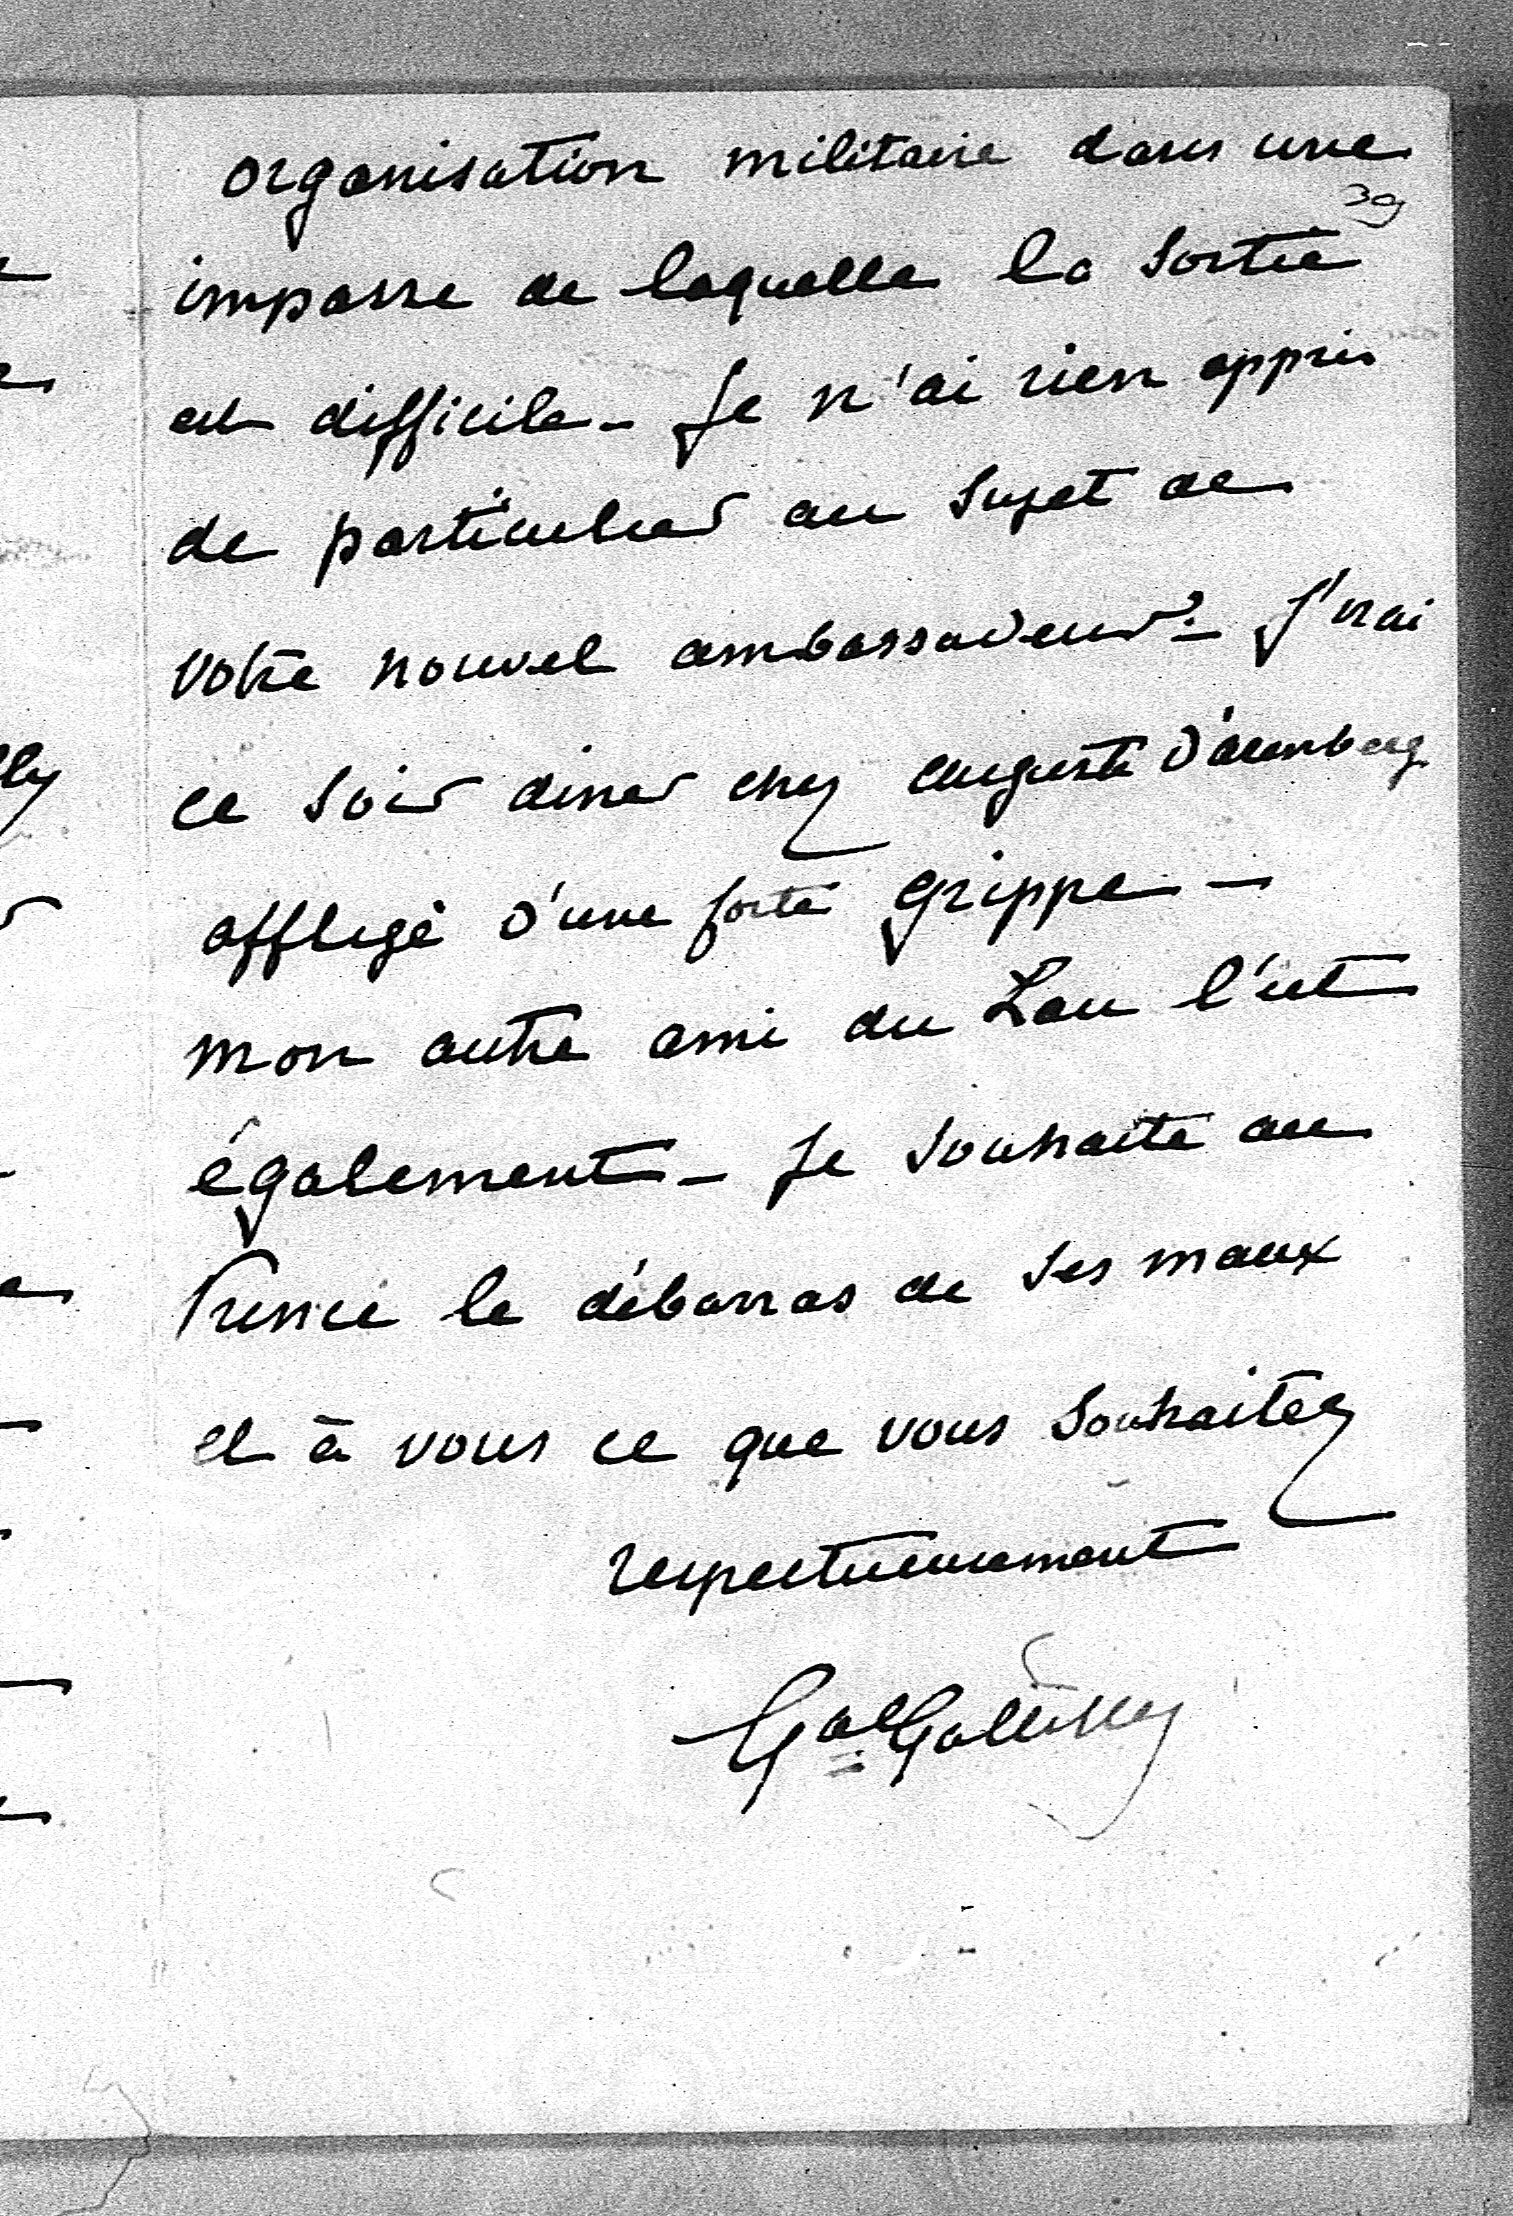 organisation militaire dans une
39
impasse de laquelle la sortie
est difficile - Je n'ai rien appris
de particulier au sujet de
votre nouvel ambassadeur ? - J'irai
ce soir diner chez Auguste d'Arenberg
affligé d'une forte grippe -
mon autre ami du Lau l'est
également - Je souhaite au
Prince le débarras de ses maux
et à vous ce que vous souhaitez
respectueusement
Gal Galliffet